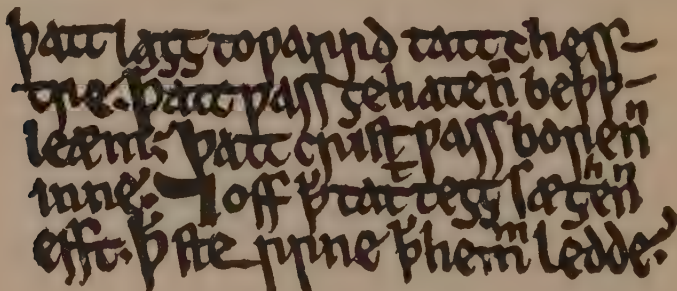 þatt lagg toƿarrd tatt chess-
tre. þatt ƿass gehatenn beþþ-
leæm. þatt crist ƿass borenn
inne. ⁊ off þ̵ tatt tegg sæghenn
efft. þ̵ ste rrne þ̵hemm ledde.